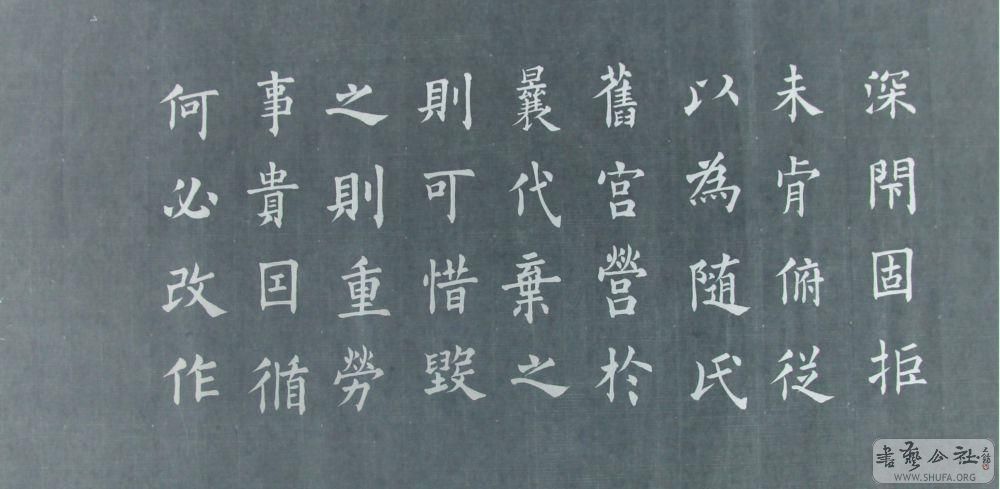 深閇固拒
未肯俯従
以為随氏
舊宮營於
曩代棄之
則可惜毀
之則重勞
事貴因循
何必改作
書藝公社
WWW.SHUFA.ORG